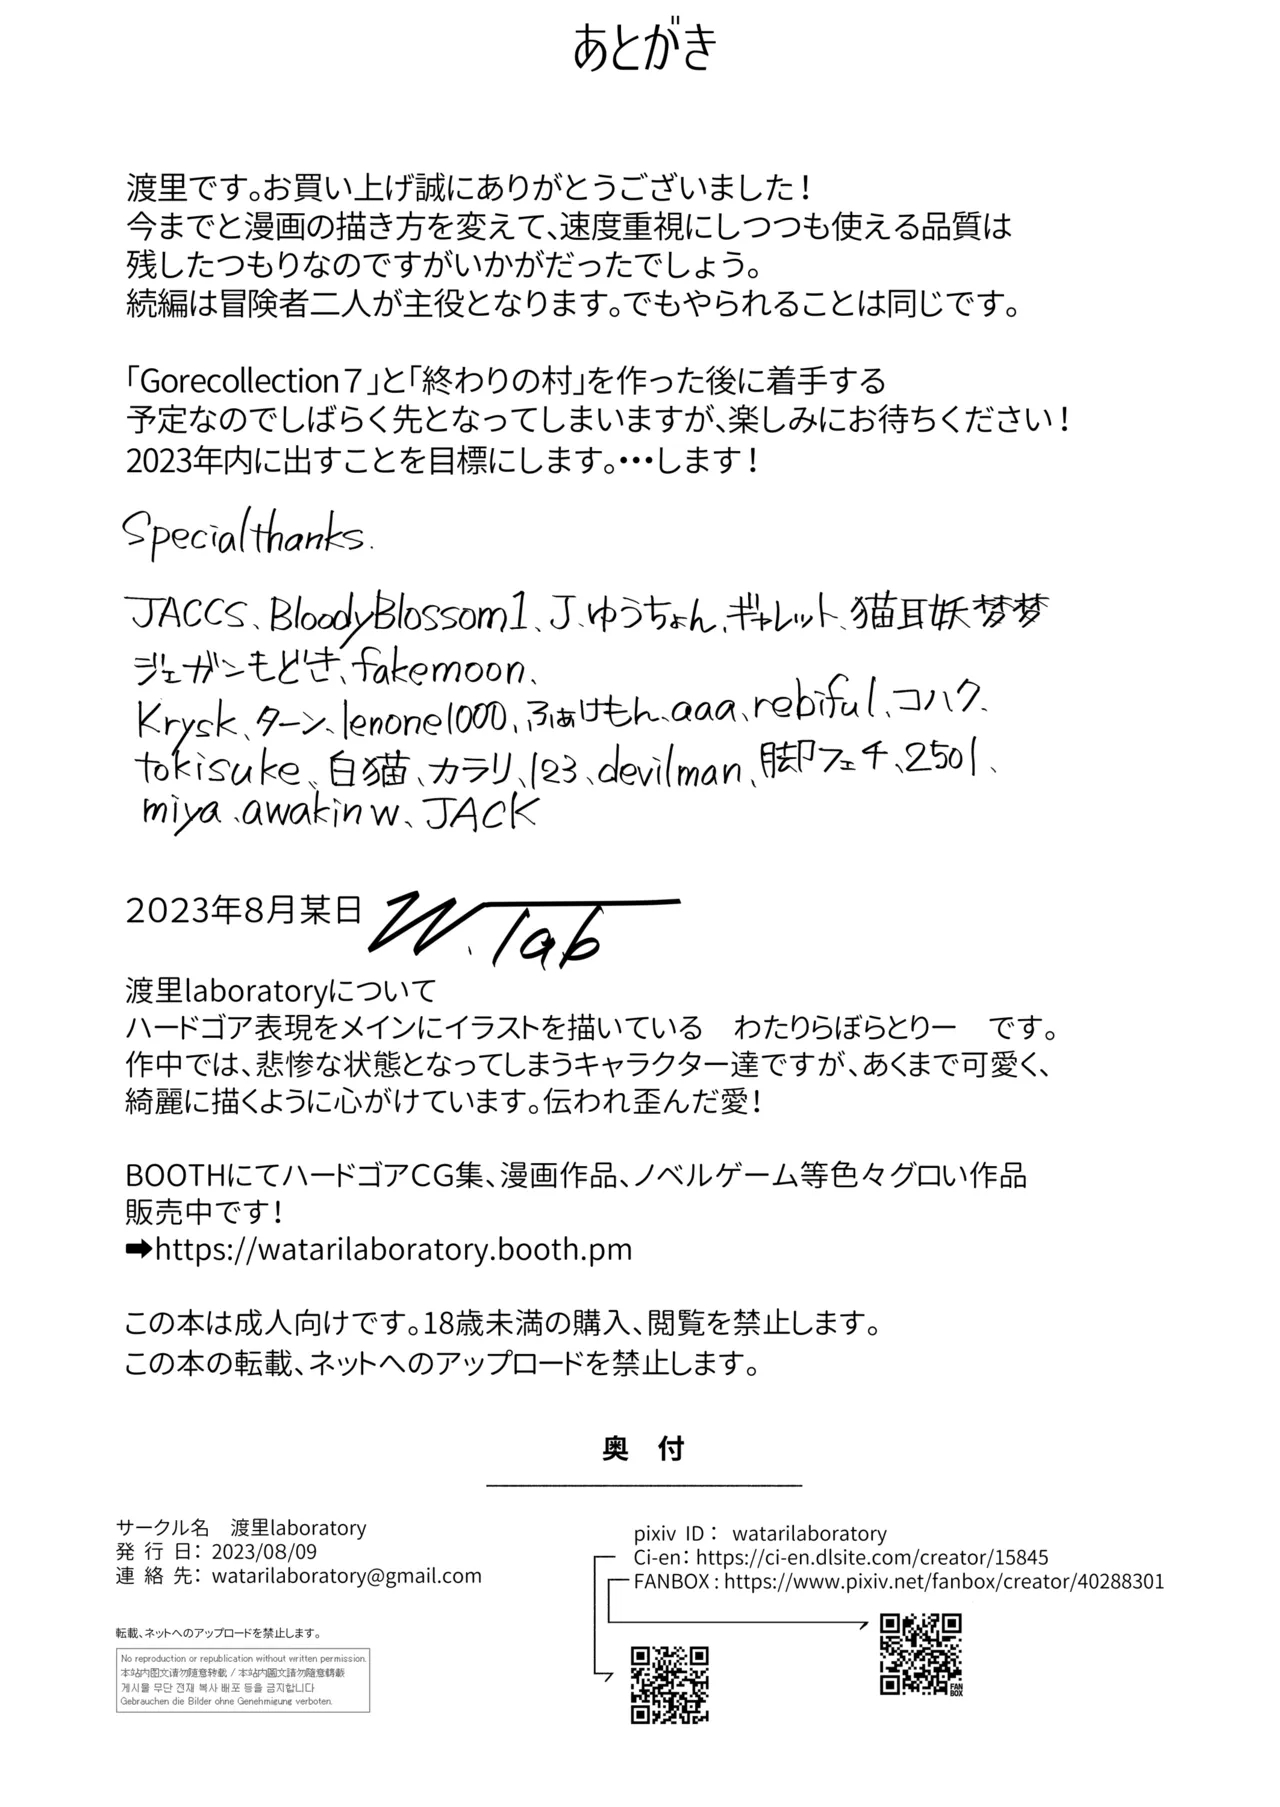 あとがき
渡里です。お買い上げ誠にありがとうございました！
今までと漫画の描き方を変えて、速度重視にしつつも使える品質は
残したつもりなのですがいかがだったでしょう。
続編は冒険者二人が主役となります。でもやられることは同じです。
「Gorecollection７」と「終わりの村」を作った後に着手する
予定なのでしばらく先となってしまいますが、楽しみにお待ちください！
2023年内に出すことを目標にします。・・・します！
Specialthanks.
JACCS、BloodyBlossom1、J、ゆうちょん、ギャレット、猫耳妖梦梦
ジェガンもどき、fakemoon、
Krysk、ターン、lenone1000、ふぁけもん、aaa、rebiful、コハク、
tokisuke、白猫、カラリ、123、devilman、脚フェチ、2501、
miya、awakinw、JACK
2023年8月某日 W.lab
渡里laboratoryについて
ハードゴア表現をメインにイラストを描いている　わたりらぼらとりー　です。
作中では、悲惨な状態となってしまうキャラクター達ですが、あくまで可愛く、
綺麗に描くように心がけています。伝われ歪んだ愛！
BOOTHにてハードゴアCG集、漫画作品、ノベルゲーム等色々グロい作品
販売中です！
➡https://watarilaboratory.booth.pm
この本は成人向けです。18歳未満の購入、閲覧を禁止します。
この本の転載、ネットへのアップロードを禁止します。
奥　付
サークル名　渡里laboratory
発 行 日： 2023/08/09
連 絡 先： watarilaboratory@gmail.com
転載、ネットへのアップロードを禁止します。
No reproduction or republication without written permission.
本站内图文请勿随意转载 / 本站內圖文請勿隨意轉載
게시물 무단 전재 복사 배포 등을 금지합니다
Gebrauchen die Bilder ohne Genehmigung verboten.
pixiv ID： watarilaboratory
Ci-en： https://ci-en.dlsite.com/creator/15845
FANBOX : https://www.pixiv.net/fanbox/creator/40288301
FAN
BOX